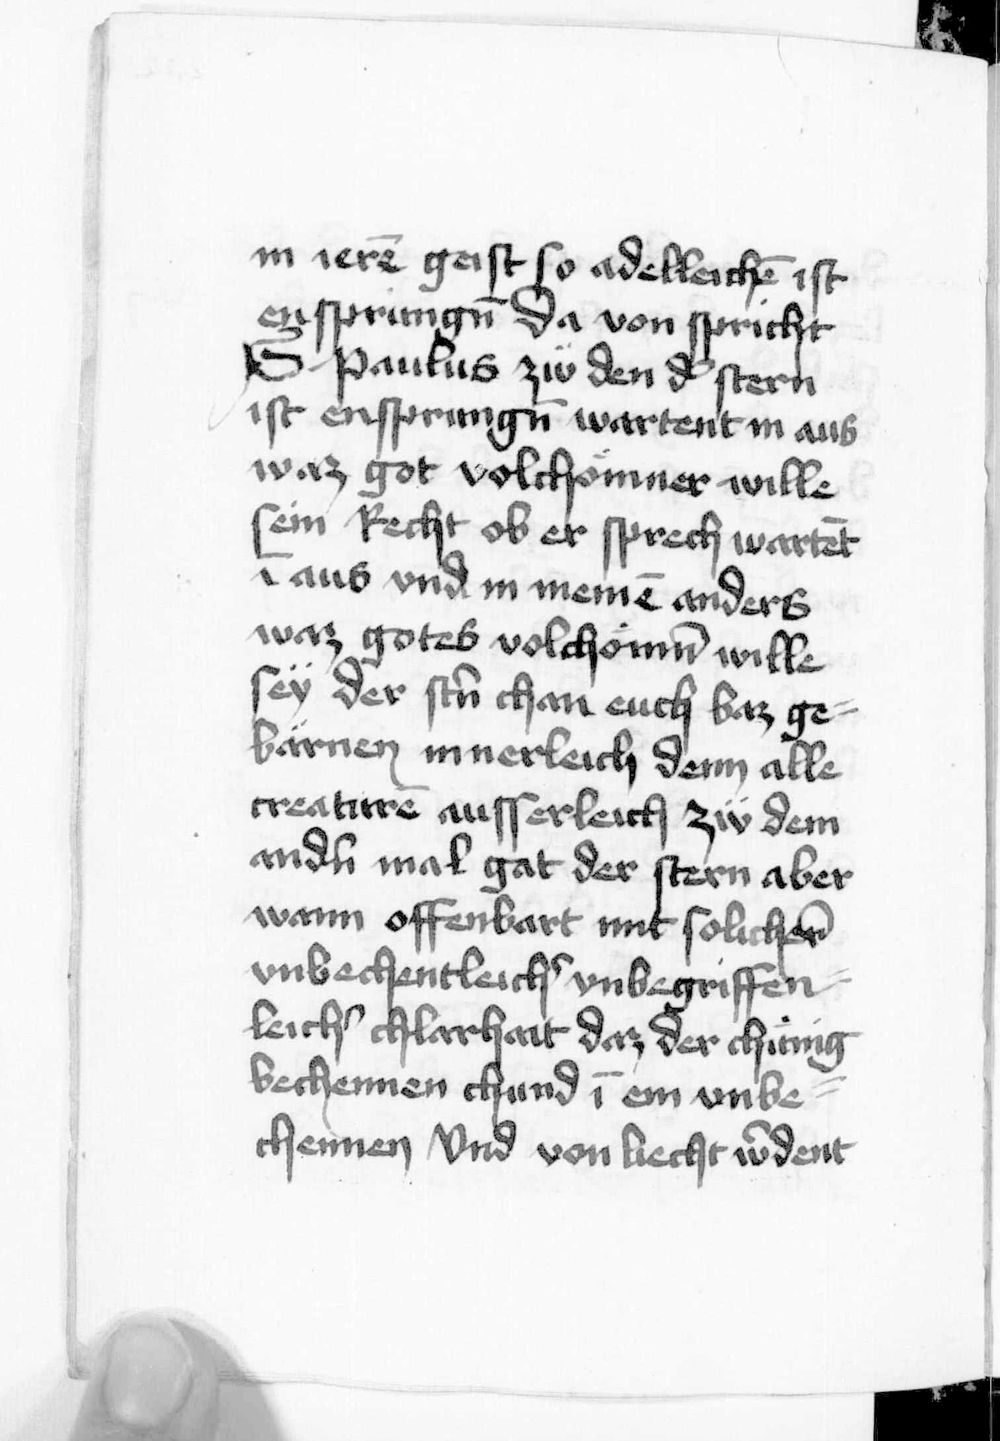 in ierē geist so adelleichē ist
ensprungn̄ Da von spricht
S Paulus zü den d͛ stern
ist ensprungn̄ wartent in aus
waz got volchömner wille
sein Recht ob er sprech wartēt
ī aus vnd in meinē anders
waz gotes volchömn̄ wille
seÿ der st͛n chan euch baz ge⸗
bärnen innerleich denn alle
creaturē ausserleich zü dem
and͛n mal gat der stern aber
wann offenbart mit solichē͛n
vnbechentleich͛ vnbegriffen⸗
leich͛ chlarhait daz der chünig
bechennen chund ī ein vnbe⸗
chennen Vnd von liecht w͛dent